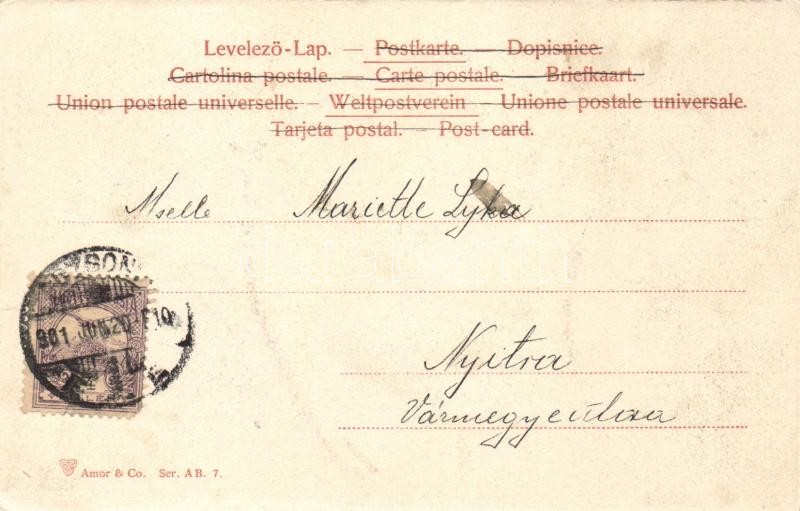 Levelező-Lap. — Postkarte. — Dopisnice.
Cartolina postale. — Carte postale. — Briefkaart.
Union postale universelle. — Weltpostverein — Unione postale universale.
Tarjeta postal. — Post-card.
Mselle Mariette Lyka
901 JUN 20 F10
Nyitra
Vármegyeútca
Amor & Co. Ser. AB. 7.